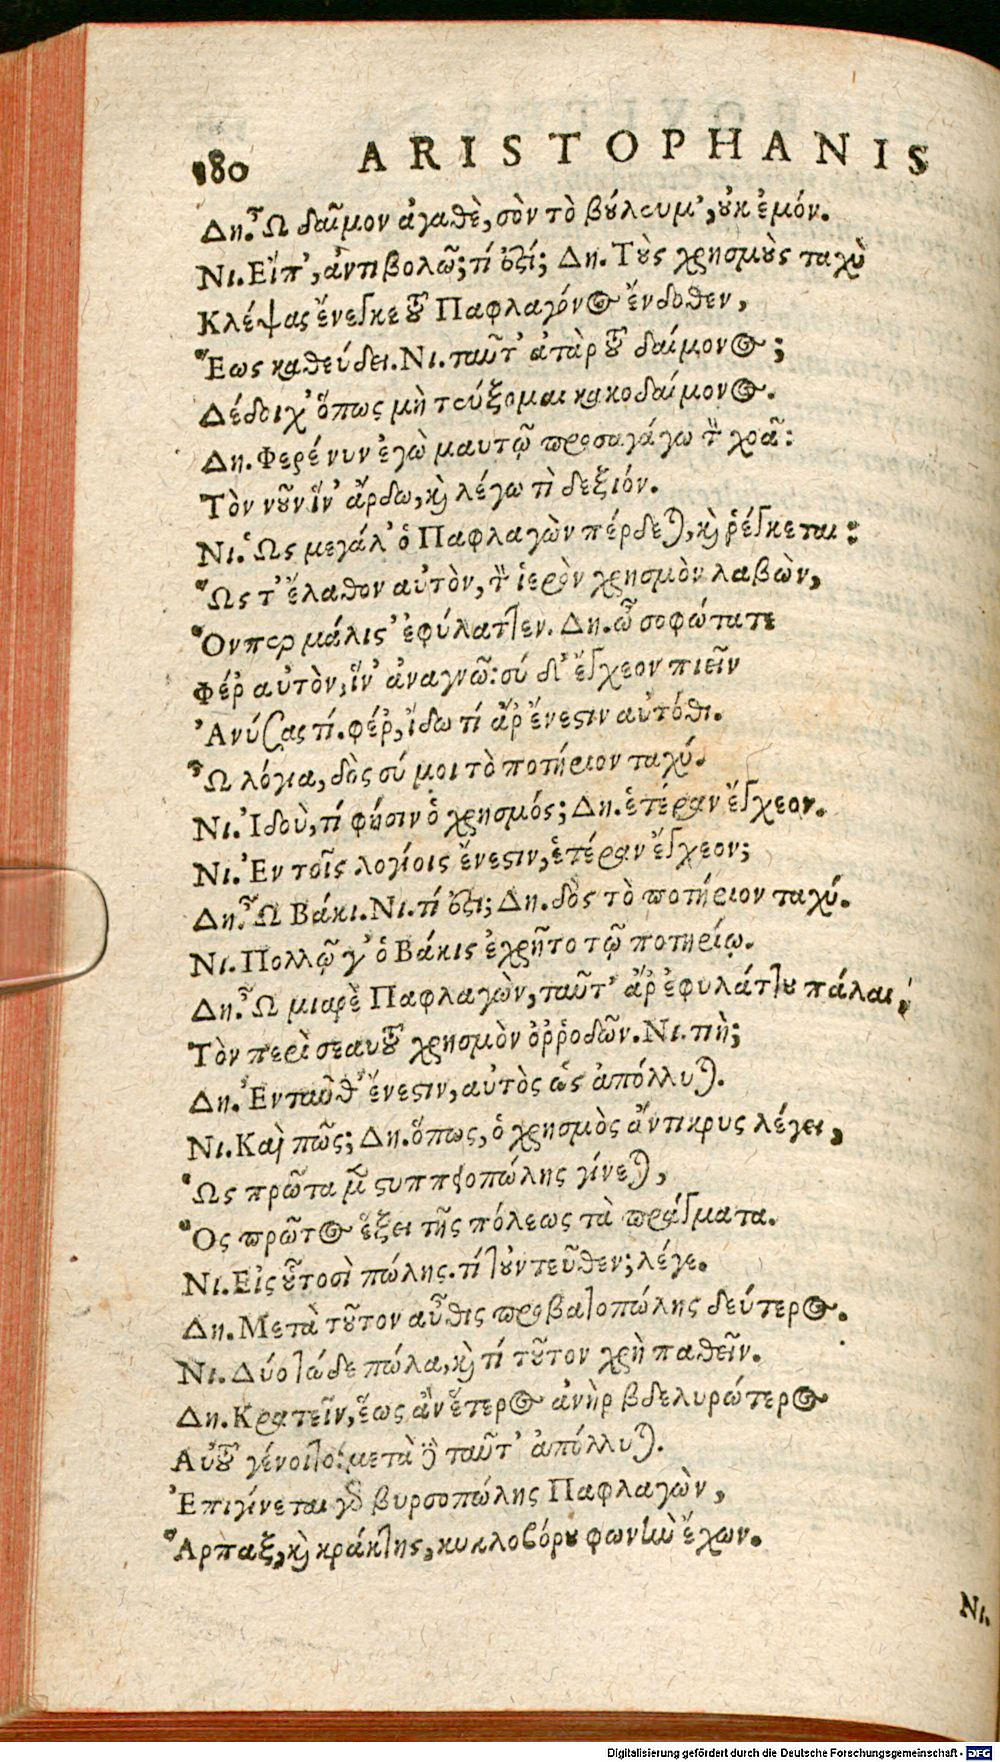 180 ARISTOPHANIS
Δη. Ὦ δαῖμον ἀγαθὲ, σὸν τὸ βȣ́λευμ', ȣ̓κ ἐμόν.
Νι. Εἴπ', ἀντιβολῶ; τί ὄϛί; Δη. Τȣ̀ς χρησμȣ̀ς ταχὺ
Κλέψας ἔνεγκε τȣ͂ Παφλαγόνος ἔνδοθεν,
Ἕως καθεύδει. Νι. ταῦτ' ἀτὰρ τȣ͂ δαίμονος;
Δέδοιχ' ὅπως μὴ τεύξομαι κακοδαίμονος.
Δη. Φερέ νυν ἐγὼ μαυτῷ προσαγάγω τὸν χοᾶ:
Τὸν νȣ͂ν ἵν' ἄρδω, ϗ λέγω τὶ δεξιόν.
Νι. Ὡς μεγάλ' ὁ Παφλαγὼν πέρδεται, ϗ ῥέγκεται:
Ὥς τ' ἔλαθον αὐτὸν, τὸν ἱερὸν χρησμὸν λαβὼν,
Ὅνπερ μάλιϛ' ἐφύλαττεν. Δη. ὦ σοφώτατε
Φέρ' αὐτὸν, ἵν' ἀναγνῶ: σύ δ' ἔγχεον πιεῖν
Ἀνύσας τί. φέρ', ἴδω τί ἄρ' ἔνεϛιν αὐτόθι.
Ὦ λόγια, δὸς σύ μοι τὸ ποτήριον ταχύ.
Νι. Ἰδοὺ, τί φήσιν ὁ χρησμός; Δη. ἑτέραν ἔγχεον.
Νι. Ἐν τοῖς λογίοις ἔνεϛιν, ἑτέραν ἔγχεον;
Δη. Ὦ Βάκι. Νι. τί ὄϛι; Δη. δὸς τὸ ποτήριον ταχύ.
Νι. Πολλῷ γ' ὁ Βάκις ἐχρῆτο τῷ ποτηρίῳ.
Δη. Ὦ μιαρὲ Παφλαγὼν, ταῦτ' ἄρ' ἐφυλάττȣ πάλαι,
Τὸν περὶ σεαυτȣ͂ χρησμὸν ὀῤῥοδῶν. Νι. πὴ;
Δη. Ἐνταῦθ' ἔνεϛιν, αὐτὸς ὡς ἀπόλλυται.
Νι. Καὶ πῶς; Δη. ὅπως, ὁ χρησμὸς ἄντικρυς λέγει,
Ὡς πρῶτα μὲν ϛυππειοπώλης γίνεται,
Ὃς πρῶτος ἕξει τῆς πόλεως τὰ πράγματα.
Νι. Εἷς ȣ̔τοσὶ πώλης. τί τȣ̓ντεῦθεν; λέγε.
Δη. Μετὰ τȣ͂τον αὖθις προβατοπώλης δεύτερος.
Νι. Δύο τώδε πώλα, ϗ τί τȣ͂τον χρὴ παθεῖν.
Δη. Κρατεῖν, ἕως ἂν ἕτερος ἀνὴρ βδελυρώτερος
Αὐτȣ͂ γένοιτο: μετὰ δὲ ταῦτ' ἀπόλλυται.
Ἐπιγίνεται γὰρ βυρσοπώλης Παφλαγὼν,
Ἅρπαξ, ϗ κράκτης, κυκλοβόρȣ φωνὴν ἔχων.
Νι.
Digitalisierung gefördert durch die Deutsche Forschungsgemeinschaft - DFG